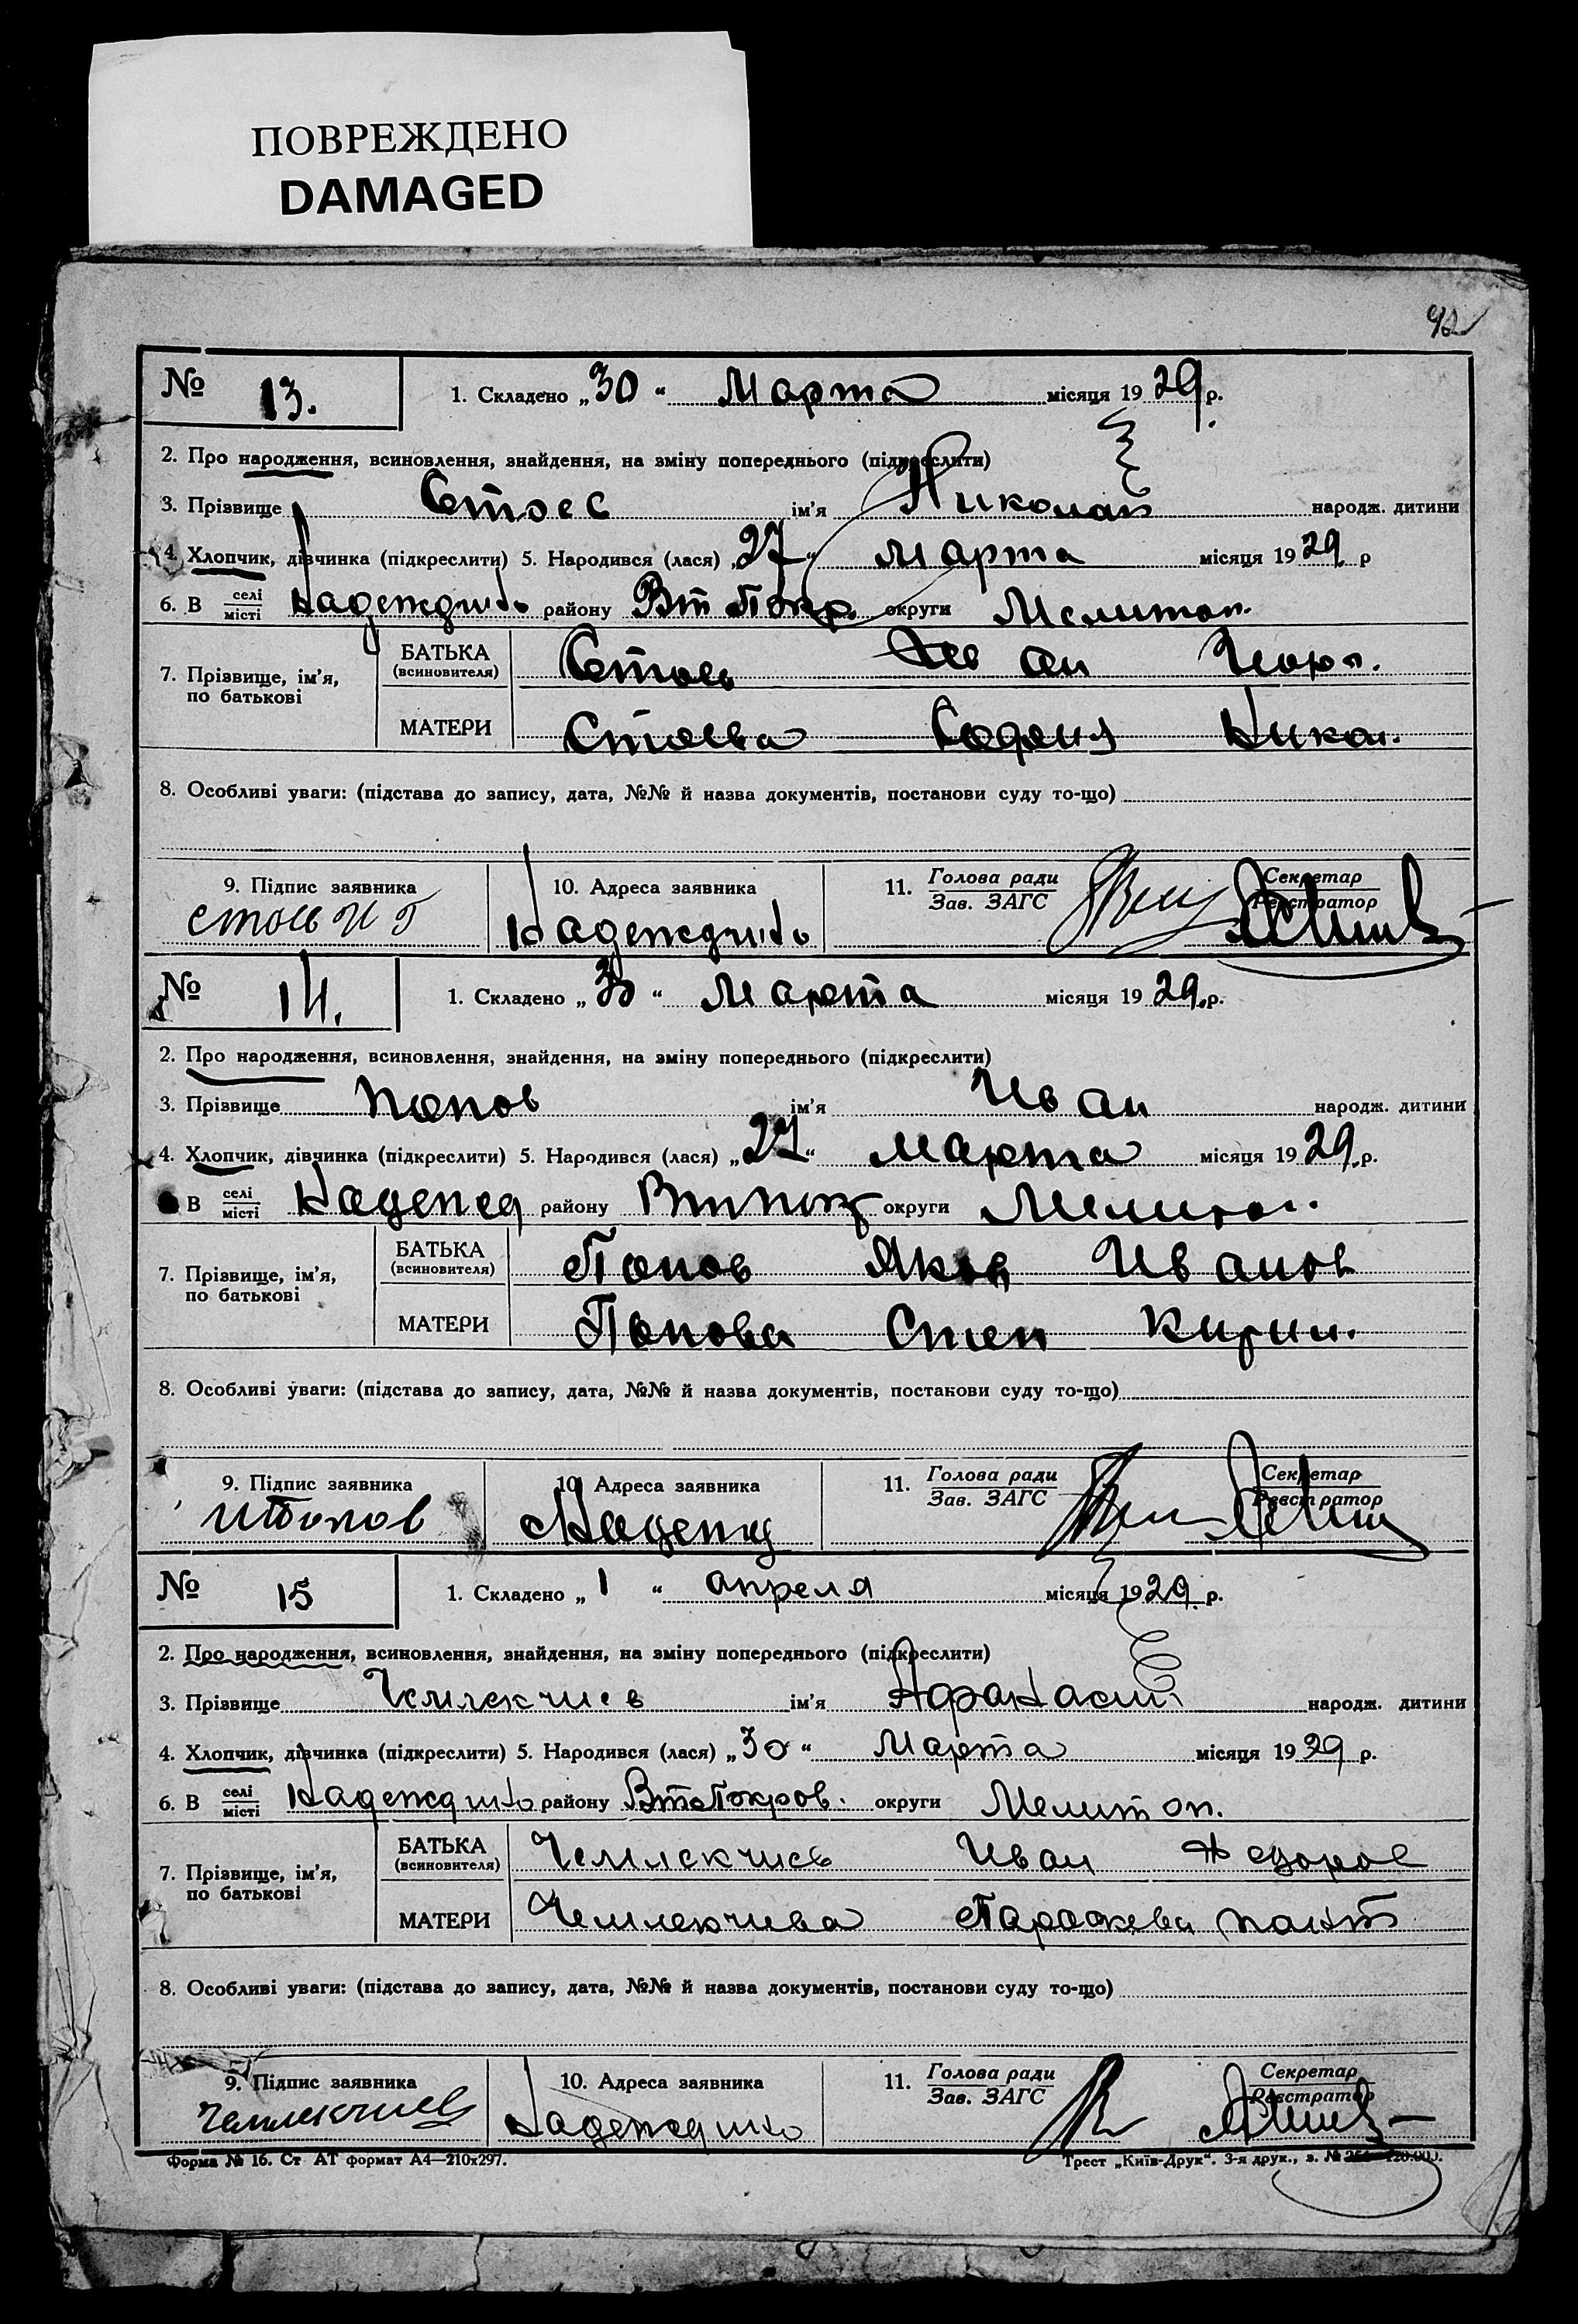 ПОВРЕЖДЕНО
DAMAGED
92
№ 13. 1. Складено „30“ Марта місяця 1929 р.
2. Про народження, всиновлення, знайдення, на зміну попереднього (підкреслити)
3. Прізвище Стоев ім'я Николай народж. дитини
4. Хлопчик, дівчинка (підкреслити) 5. Народився (лася) „27“ Марта місяця 1929 р
6. В селі місті Надеждино району Вт Покр. округи Мелитоп.
7. Прізвище, ім'я, по батькові БАТЬКА (всиновителя) Стоев Иван Георг.
МАТЕРИ Стоева Никол.
8. Особливі уваги: (підстава до запису, дата, №№ й назва документів, постанови суду то-що)
9. Підпис заявника 10. Адреса заявника 11. Голова ради Зав. ЗАГС Секретар Реєстратор
Стоев И Г Надеждино
№ 14. 1. Складено „30“ Марта місяця 1929 р.
2. Про народження, всиновлення, знайдення, на зміну попереднього (підкреслити)
3. Прізвище Попов ім'я Иван народж. дитини
4. Хлопчик, дівчинка (підкреслити) 5. Народився (лася) „27“ Марта місяця 1929 р.
В селі місті Надежд району округи Мелитоп.
7. Прізвище, ім'я, по батькові БАТЬКА (всиновителя) Попов Яков Иванов
МАТЕРИ Попова Степ Кирил.
8. Особливі уваги: (підстава до запису, дата, №№ й назва документів, постанови суду то-що)
9. Підпис заявника 10. Адреса заявника 11. Голова ради Зав. ЗАГС Секретар Реєстратор
Попов Надежд
№ 15 1. Складено „1“ апреля місяця 1929 р.
2. Про народження, всиновлення, знайдення, на зміну попереднього (підкреслити)
3. Прізвище Чемлекчиев ім'я Афанасий народж. дитини
4. Хлопчик, дівчинка (підкреслити) 5. Народився (лася) „30“ Марта місяця 1929 р.
6. В селі місті Надеждино району ВтПокров. округи Мелитоп.
7. Прізвище, ім'я, по батькові БАТЬКА (всиновителя) Чемлекчиев Иван Федоров
МАТЕРИ Чемлекчиева Параскева Пант
8. Особливі уваги: (підстава до запису, дата, №№ й назва документів, постанови суду то-що)
9. Підпис заявника 10. Адреса заявника 11. Голова ради Зав. ЗАГС Секретар Реєстратор
Чемлекчиев Надеждино
Форма № 16. Ст АТ формат А4—210х297. Трест „Київ-Друк“. 3-я друк., з. №